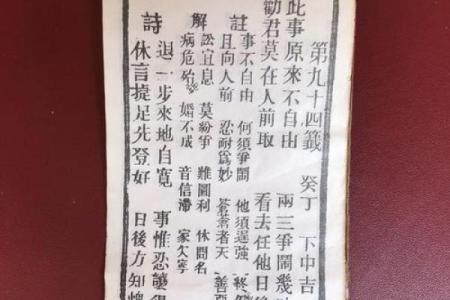 第九十四籤 癸丁 下中吉
此事原來不自由 兩三爭鬧幾
勸君莫在人前取 看去任他日後
註 事不自由 何須爭鬧 他須逞強
且向人前 忍耐爲妙 蒼蒼者天 善惡
解 訟宜息 莫紛爭 難圖利 休問名
病危殆 婚不成 音信滯 家欠寧
詩 退一步來地自寬 事惟恐讓
休言捷足先登好 日後方知